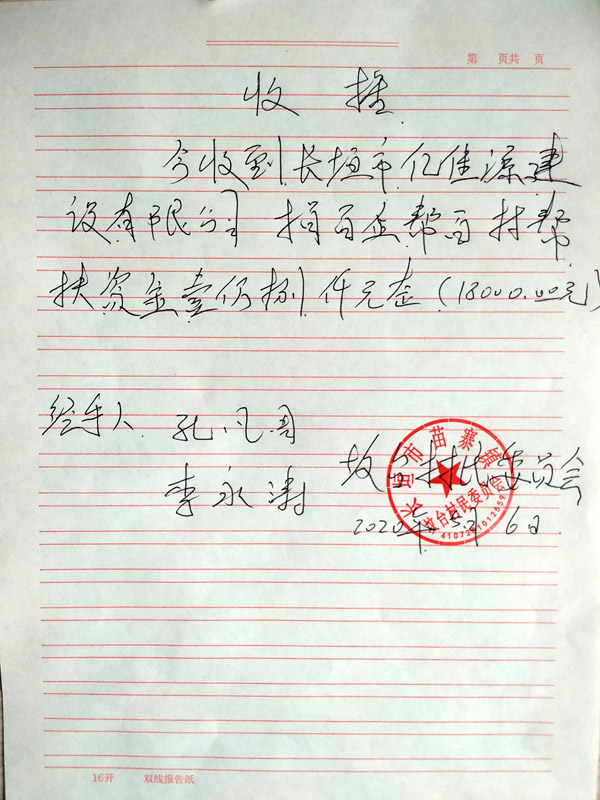 第 页共 页
收据
今收到长垣市亿佳源建
设有限公司捐百企帮百村帮
扶资金壹仟捌仟元整（18000.00元）
经手人 孔凡周
坟台村民委员会
李永涛
2020年5月6日
长垣市苗寨镇
坟台村民委员会
4107281012559
16开 双线报告纸